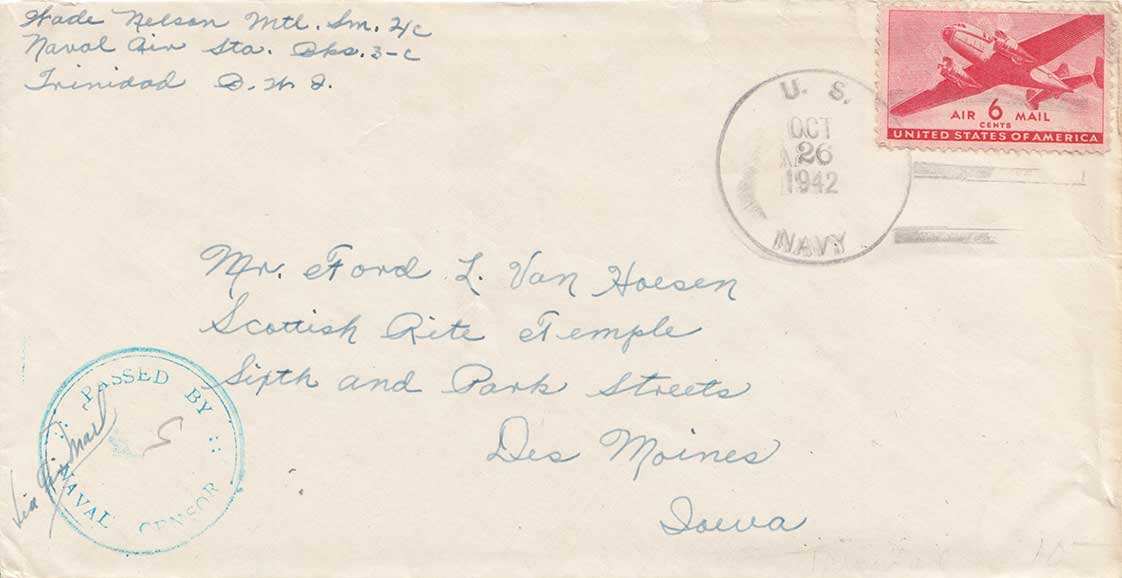 Wade Nelson Mtl. Sm. 2/c
Naval Air Sta. Bks. 3-C
Trinidad B. W. I.
U. S.
OCT
26
1942
NAVY
AIR 6 MAIL
CENTS
UNITED STATES OF AMERICA
Mr. Ford L. Van Hoesen
Scottish Rite Temple
Sixth and Park Streets
Des Moines
Iowa
PASSED BY
NAVAL CENSOR
Via Air Mail